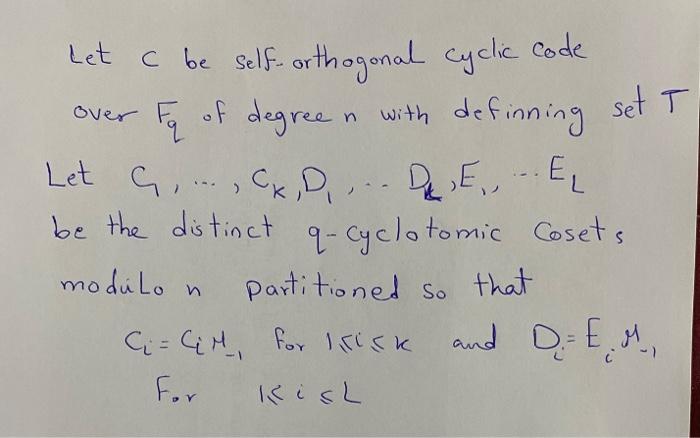 Let C be self-orthogonal cyclic code
over F_q of degree n with definning set T
Let C_1, ..., C_K, D_1, ... D_L, E_1, ... E_L
be the distinct q-cyclotomic Cosets
modulo n partitioned so that
C_i = C_i M_{-1} for 1 ≤ i ≤ k and D_i = E_i M_{-1}
For 1 ≤ i ≤ L